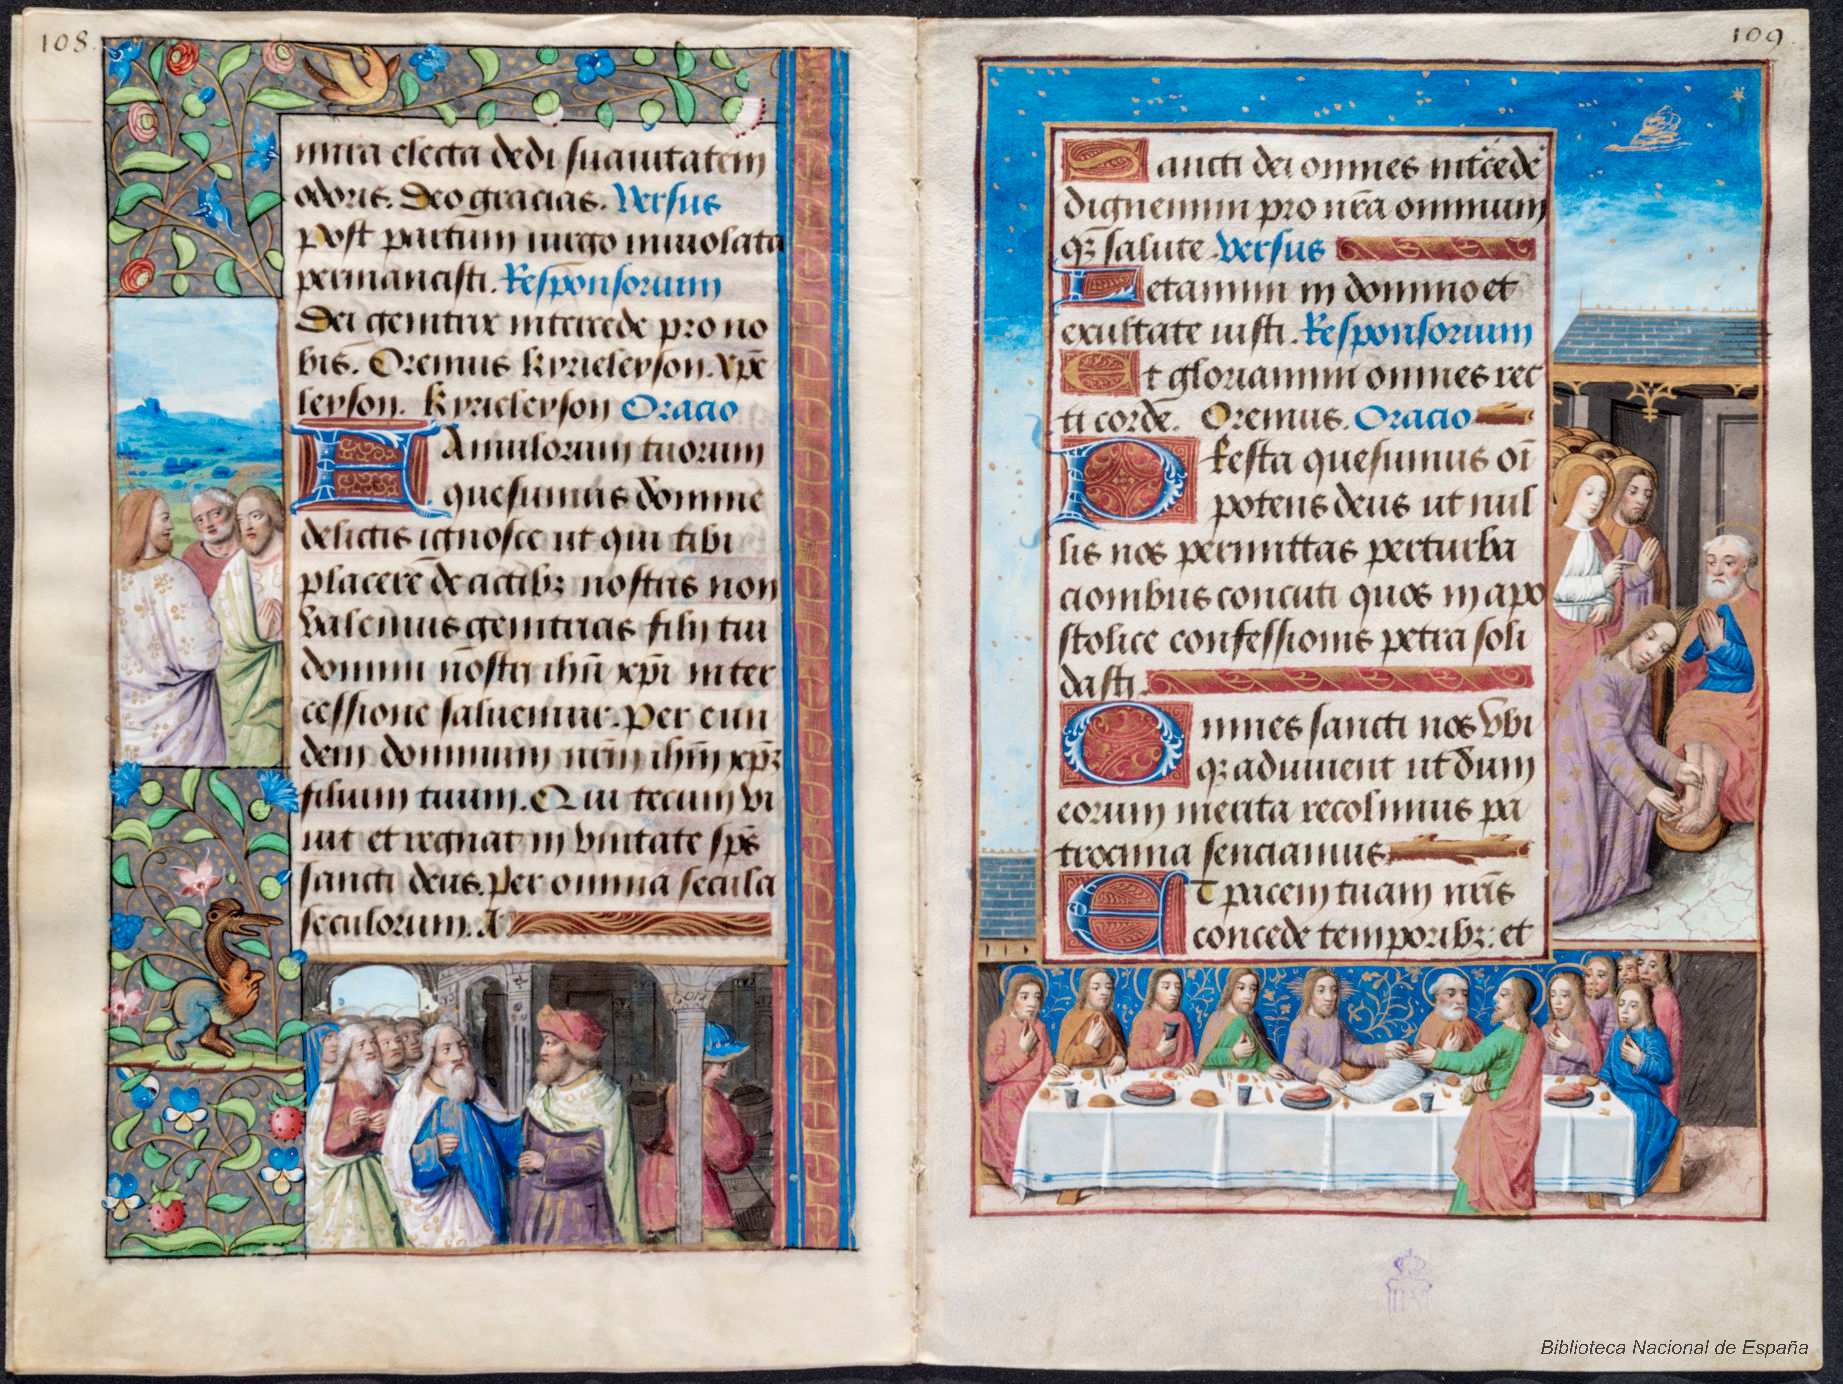 108.
mirra electa dedi suauitatem
odoris. Deo gracias. Versus
post partum uirgo inuiolata
permansisti. Responsorium
Dei genitrix intercede pro no
bis. Oremus kyrieleyson. xp̄e
leyson. Kyrieleyson Oracio
FAmulorum tuorum
quesumus domine
delictis ignosce ut qui tibi
placere de actibꝫ nostris non
valemus genitricis filij tui
domini nostri ihū xp̄i inter
cessione saluemur. Per eun
dem dominum nr̄m ihm̄ xp̄ꝫ
filium tuum. Qui tecum vi
uit et regnat in vnitate sp̄s
sancti deus. Per omnia secula
seculorum. A
109.
Sancti dei omnes int̄cede
dignemini pro nr̄a omnium
qꝫ salute Versus
Letamini in domino et
exultate iusti. Responsorium
Et gloriamini omnes rec
ti corde. Oremus. Oracio
PResta quesumus oī
potens deus ut nul
lis nos permittas perturba
cionibus concuti quos in apo
stolice confessionis petra soli
dasti.
Omnes sancti nos vbi
qꝫ adiuuent ut dum
eorum merita recolimus pa
trocinia senciamus
Et pacem tuam nr̄is
concede temporibꝫ: et
Biblioteca Nacional de España